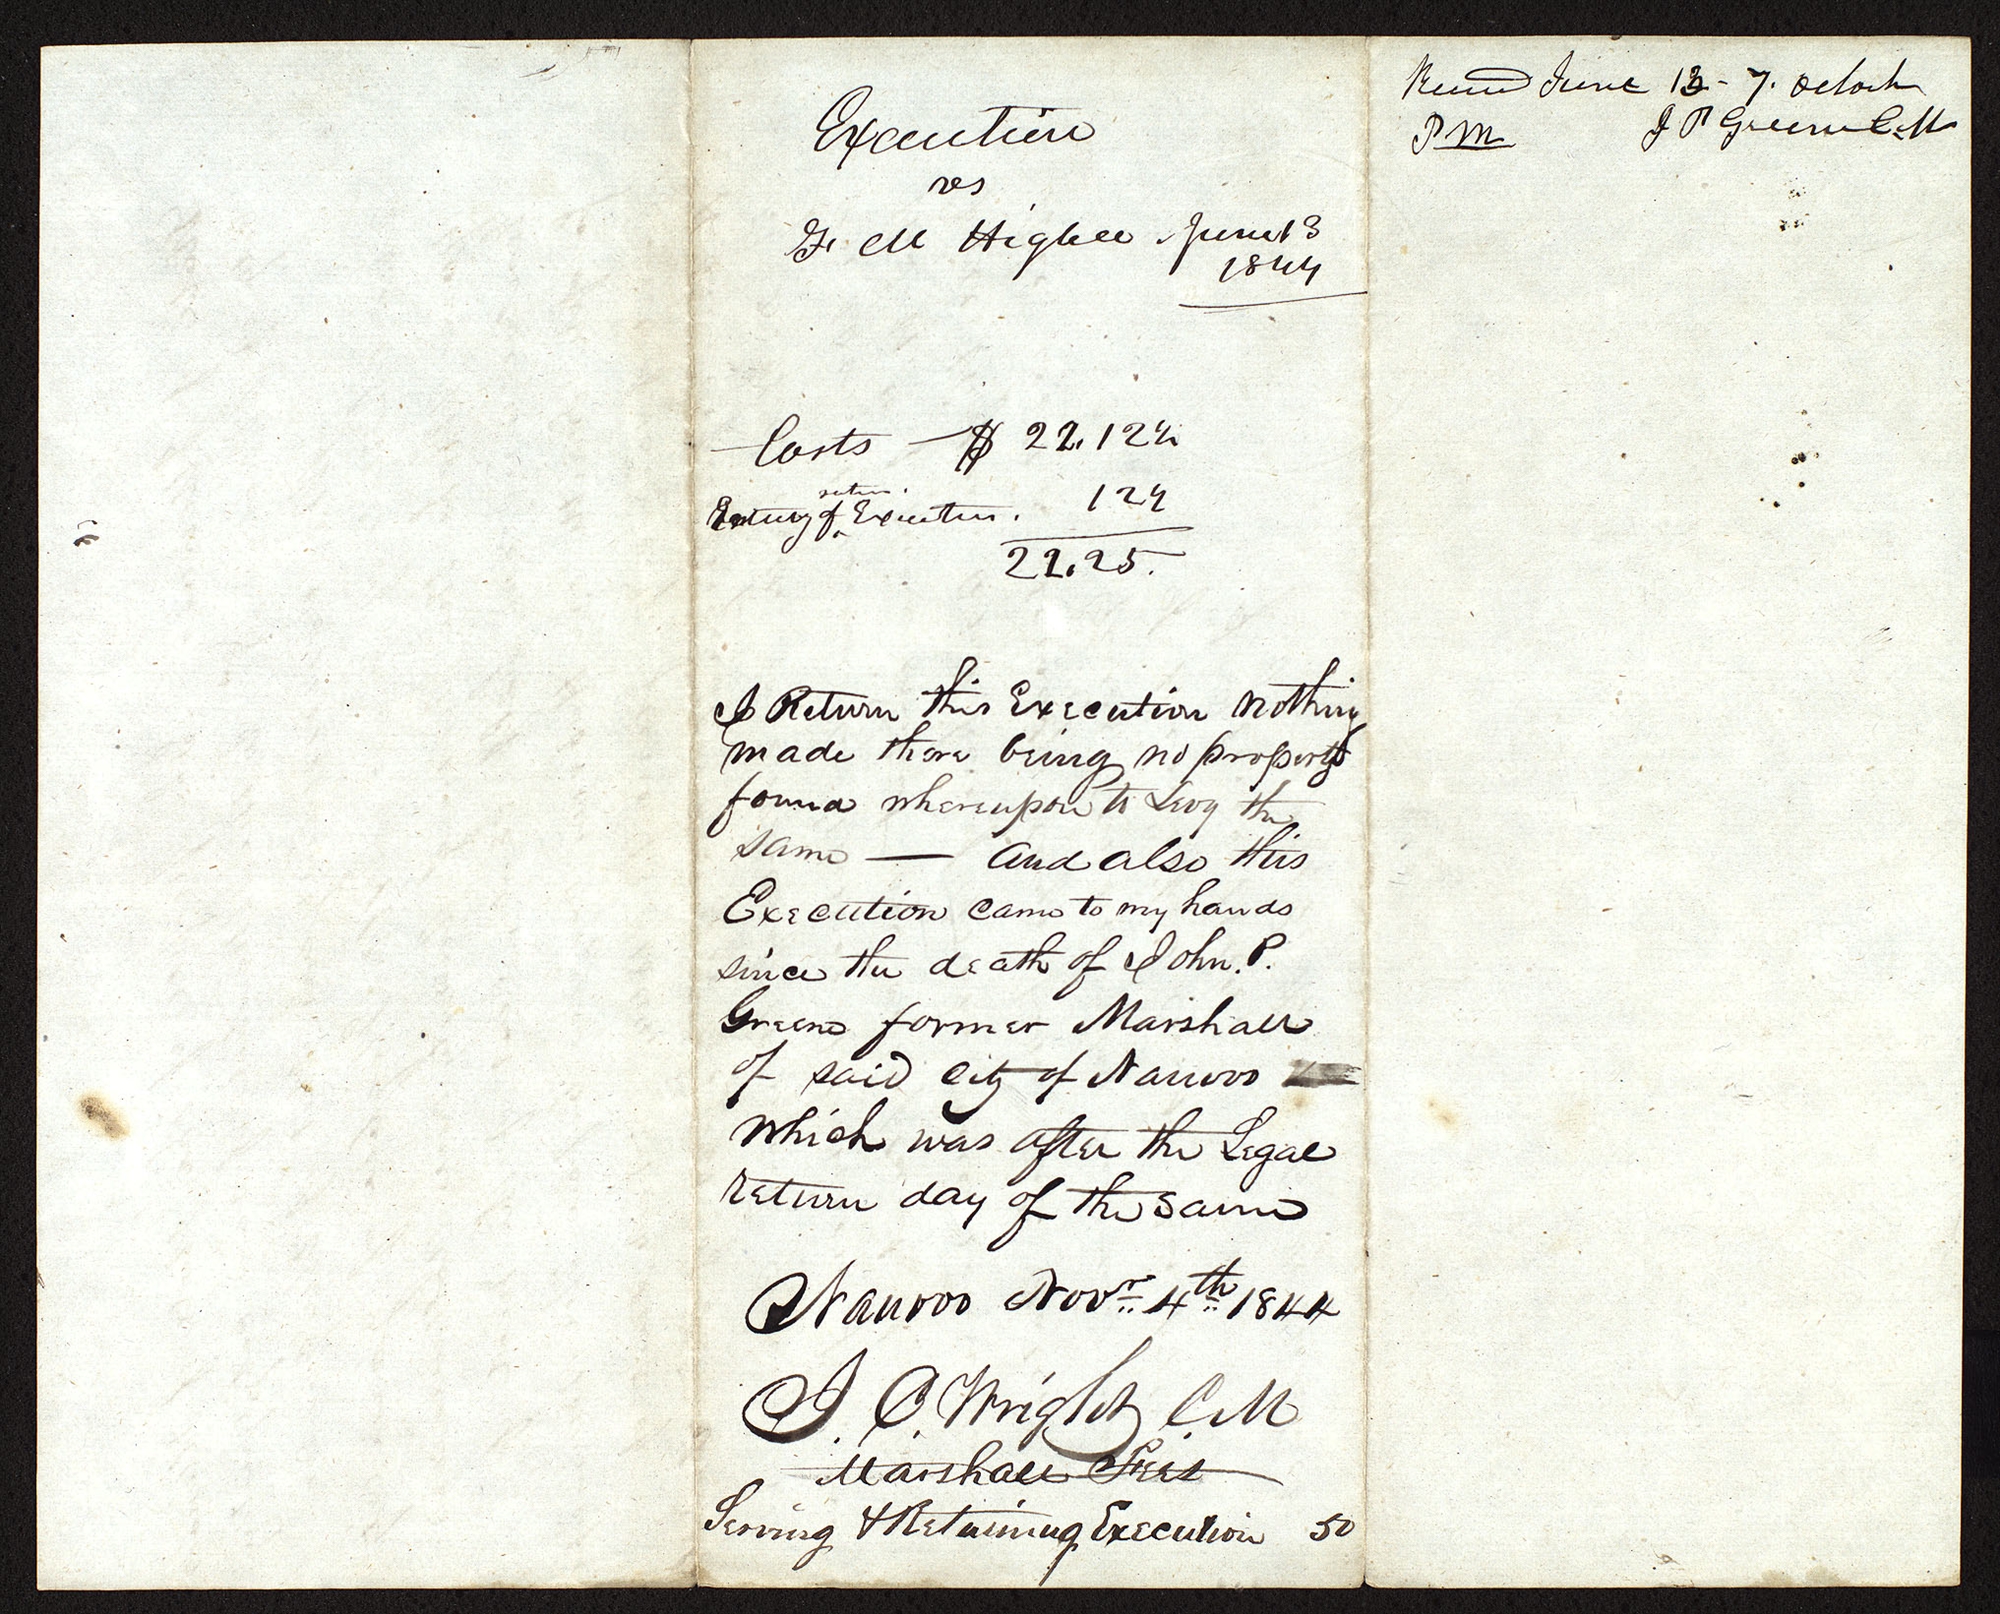 Execution
vs
F. M Higbee June 13
1844
Costs — $ 22.12½
Entery of return Execution. 12½
22.25.
I Return this Execution nothing
made there being no property
found whereupon to Levy the
same — And also this
Execution came to my hands
since the death of John. P.
Greene former Marshall
of said city of Nauvoo
which was after the Legal
return day of the same
Nauvoo Novr 4th 1844
J. C. Wright C. M
Marshall Fees
Serving & Returning Execution 50
Recvd June 13 - 7. oclock
P M J P Greene C. M